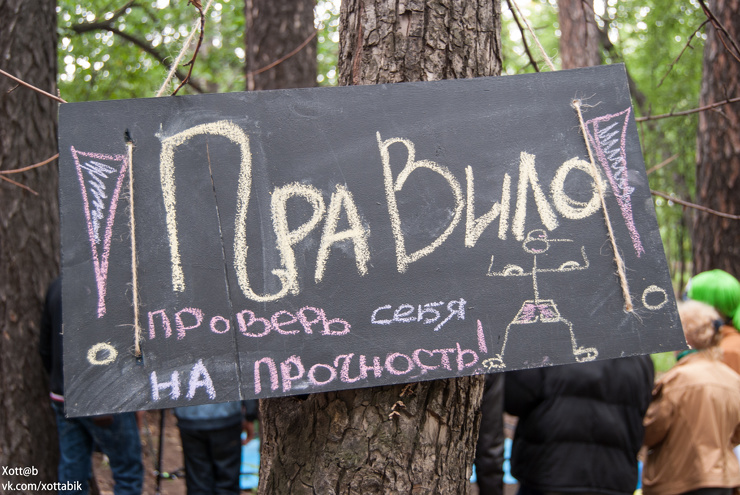 ПраВило
проверь себя
на прочность!
Xott@b
vk.com/xottabik